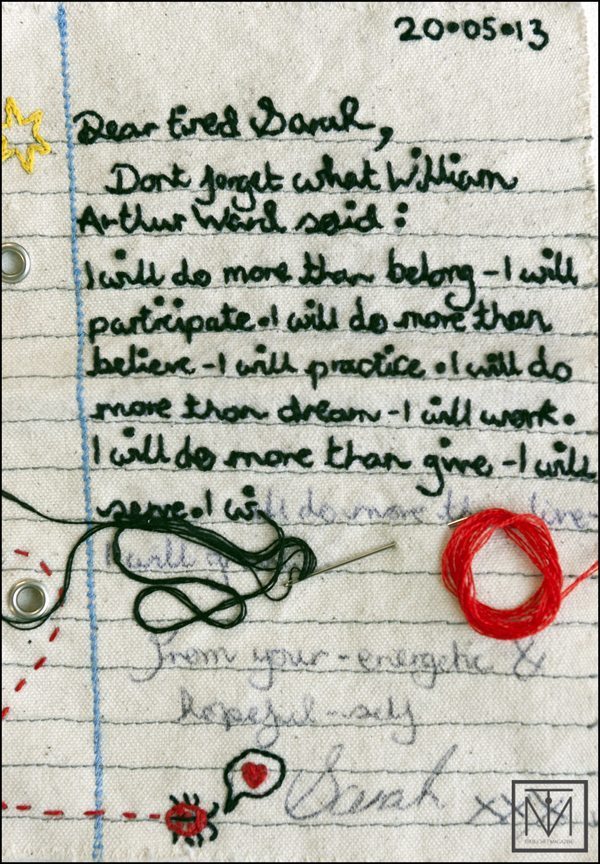 20•05•13
Dear tired Sarah,
Dont forget what William
Arthur Ward said :
I will do more than belong - I will
participate. I will do more than
believe - I will practice. I will do
more than dream - I will work.
I will do more than give - I will
serve. I will do more than live -
I will
From your-energetic &
hopeful-self
Sarah xxx